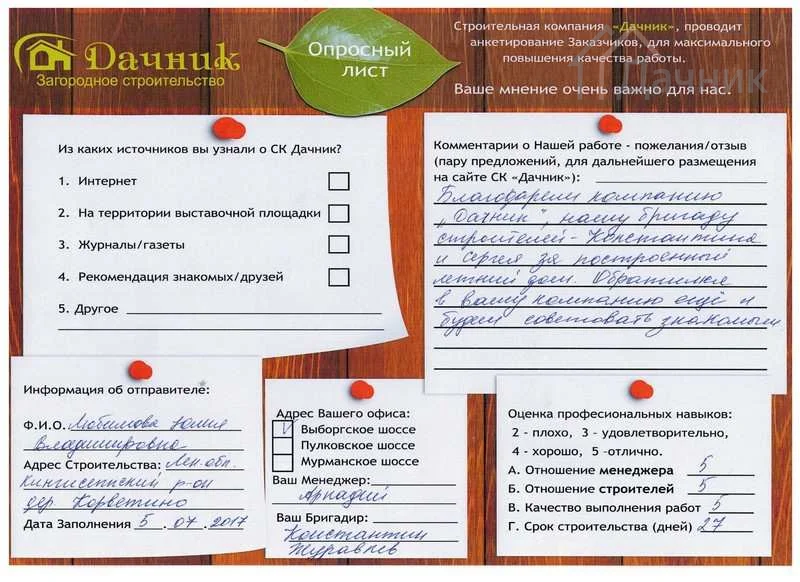 Дачник
Загородное строительство
Опросный
лист
Строительная компания «Дачник», проводит
анкетирование Заказчиков, для максимального
повышения качества работы.
Ваше мнение очень важно для нас.
Дачник
Из каких источников вы узнали о СК Дачник?
1. Интернет
2. На территории выставочной площадки
3. Журналы/газеты
4. Рекомендация знакомых/друзей
5. Другое
Комментарии о Нашей работе - пожелания/отзыв
(пару предложений, для дальнейшего размещения
на сайте СК «Дачник»):
Благодарели компанию
„Дачник", нашу бригаду
строителей - Константина
и Сергея за построенный
летний дом. Обратимся
в вашу компанию ещё и
будем советовать знакомым
Информация об отправителе:
Ф.И.О. Любимова Юлия
Владимировна
Адрес Строительства: Лен. обл.
Кингисеппский р-он
дер Корветино
Дата Заполнения 5 . 07 . 2017
Адрес Вашего офиса:
V Выборгское шоссе
Пулковское шоссе
Мурманское шоссе
Ваш Менеджер:
Аркадий
Ваш Бригадир:
Константин
Журавлев
Оценка професиональных навыков:
2 - плохо, 3 - удовлетворительно,
4 - хорошо, 5 -отлично.
А. Отношение менеджера 5
Б. Отношение строителей 5
В. Качество выполнения работ 5
Г. Срок строительства (дней) 27